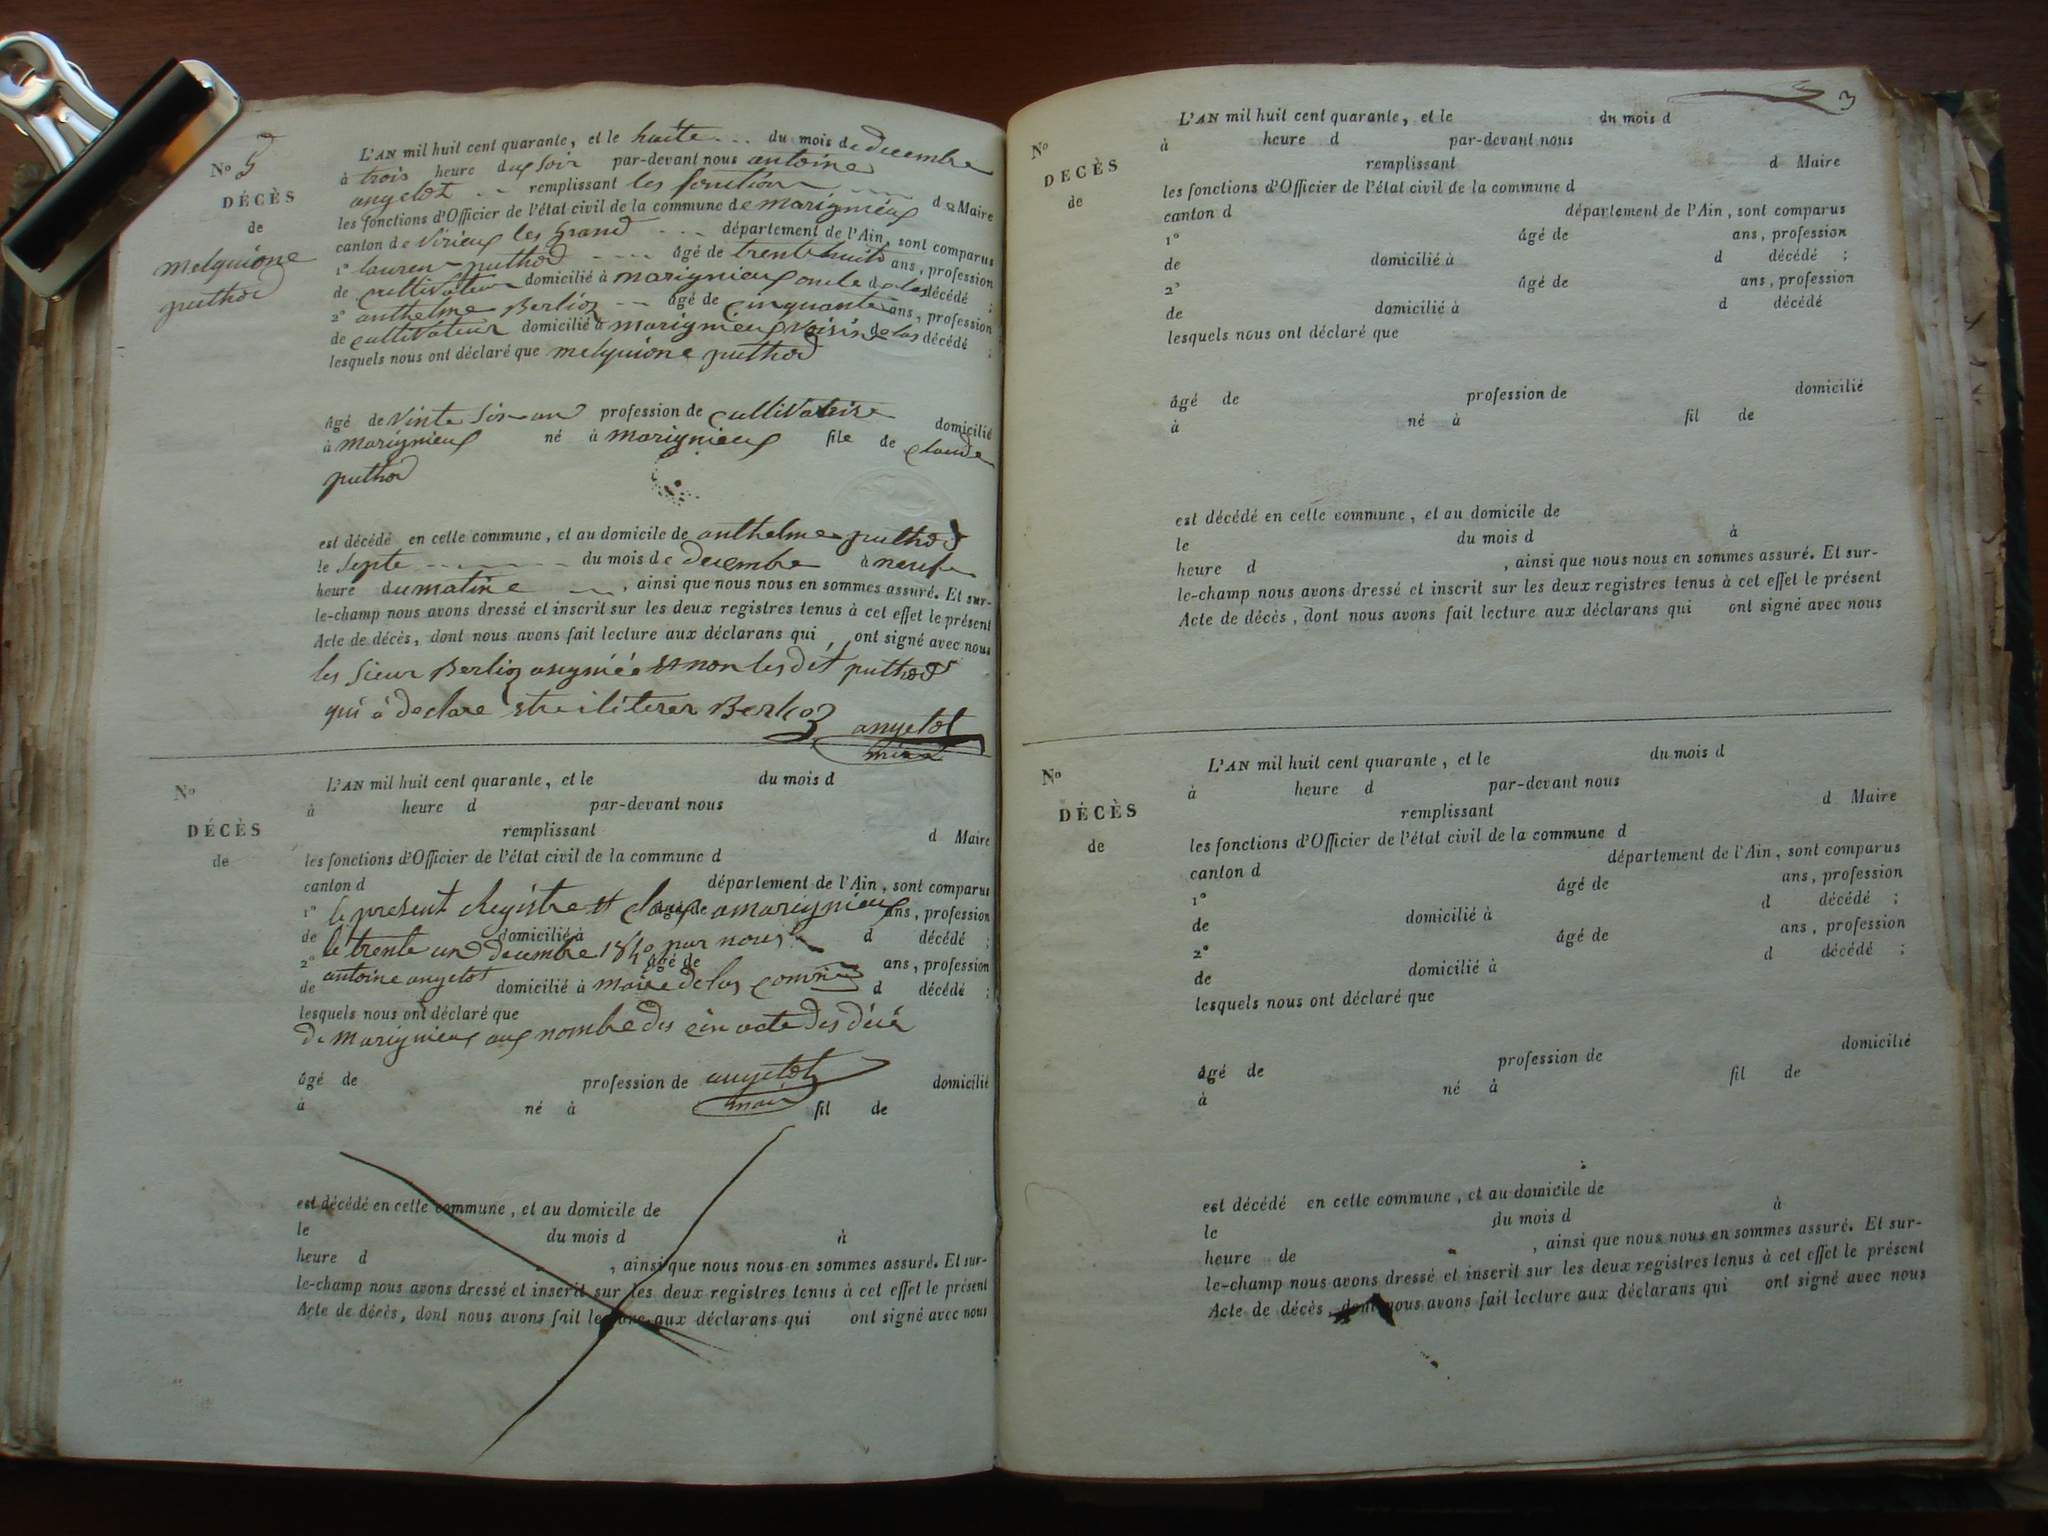 No 5
DÉCÈS
de
melquione
puthod
L'AN mil huit cent quarante, et le huite du mois de decembre
à trois heure du soir par-devant nous antoine
angelot remplissant les fonction de Maire
les fonctions d'Officier de l'état civil de la commune de marignieux
canton de Virieux les grand département de l'Ain, sont comparus
1° lauren puthod âgé de trente huit ans, profession
de cultivateur domicilié à marignieux oncle de la décédé ;
2° anthelme Berlioz âgé de cinquante ans, profession
de cultivateur domicilié à marignieux voisin de las décédé ;
lesquels nous ont déclaré que melquione puthod
âgé de vinte sis an profession de cultivatrise domicilié
à marignieux né à marignieux file de claude
puthod
est décédé en cette commune, et au domicile de anthelme puthod
le septe du mois de decembre à neufe
heure du matine , ainsi que nous nous en sommes assuré. Et sur-
le-champ nous avons dressé et inscrit sur les deux registres tenus à cet effet le présent
Acte de décès, dont nous avons fait lecture aux déclarans qui ont signé avec nous
les sieur Berlioz asignié et non les dit puthod
qui à declare être iliterer Berlioz angelot
maire
No
DÉCÈS
de
L'AN mil huit cent quarante, et le du mois d
à heure d par-devant nous
remplissant d Maire
les fonctions d'Officier de l'état civil de la commune d
canton d département de l'Ain, sont comparus
1° le present Registre et clos amarignieux âgé de ans, profession
de domicilié à d décédé ;
le trente un decembre 1840 par nous
2° âgé de ans, profession
antoine angelot maire de las comune
de domicilié à d décédé ;
lesquels nous ont déclaré que
de marignieux aux nombre des cin acte des décè
âgé de profession de angelot domicilié
à né à maire fil de
est décédé en cette commune, et au domicile de
le du mois d à
heure d , ainsi que nous nous en sommes assuré. Et sur-
le-champ nous avons dressé et inscrit sur les deux registres tenus à cet effet le présent
Acte de décès, dont nous avons fait lecture aux déclarans qui ont signé avec nous
3
No
DÉCÈS
de
L'AN mil huit cent quarante, et le du mois d
à heure d par-devant nous
remplissant d Maire
les fonctions d'Officier de l'état civil de la commune d
canton d département de l'Ain, sont comparus
1° âgé de ans, profession
de domicilié à d décédé ;
2° âgé de ans, profession
de domicilié à d décédé
lesquels nous ont déclaré que
âgé de profession de domicilié
à né à fil de
est décédé en cette commune, et au domicile de
le du mois d à
heure d , ainsi que nous nous en sommes assuré. Et sur-
le-champ nous avons dressé et inscrit sur les deux registres tenus à cet effet le présent
Acte de décès, dont nous avons fait lecture aux déclarans qui ont signé avec nous
No
DÉCÈS
de
L'AN mil huit cent quarante, et le du mois d
à heure d par-devant nous
remplissant d Maire
les fonctions d'Officier de l'état civil de la commune d
canton d département de l'Ain, sont comparus
1° âgé de ans, profession
de domicilié à d décédé ;
2° âgé de ans, profession
de domicilié à d décédé ;
lesquels nous ont déclaré que
âgé de profession de domicilié
à né à fil de
est décédé en cette commune, et au domicile de
le du mois d à
heure de , ainsi que nous nous en sommes assuré. Et sur-
le-champ nous avons dressé et inscrit sur les deux registres tenus à cet effet le présent
Acte de décès, dont nous avons fait lecture aux déclarans qui ont signé avec nous